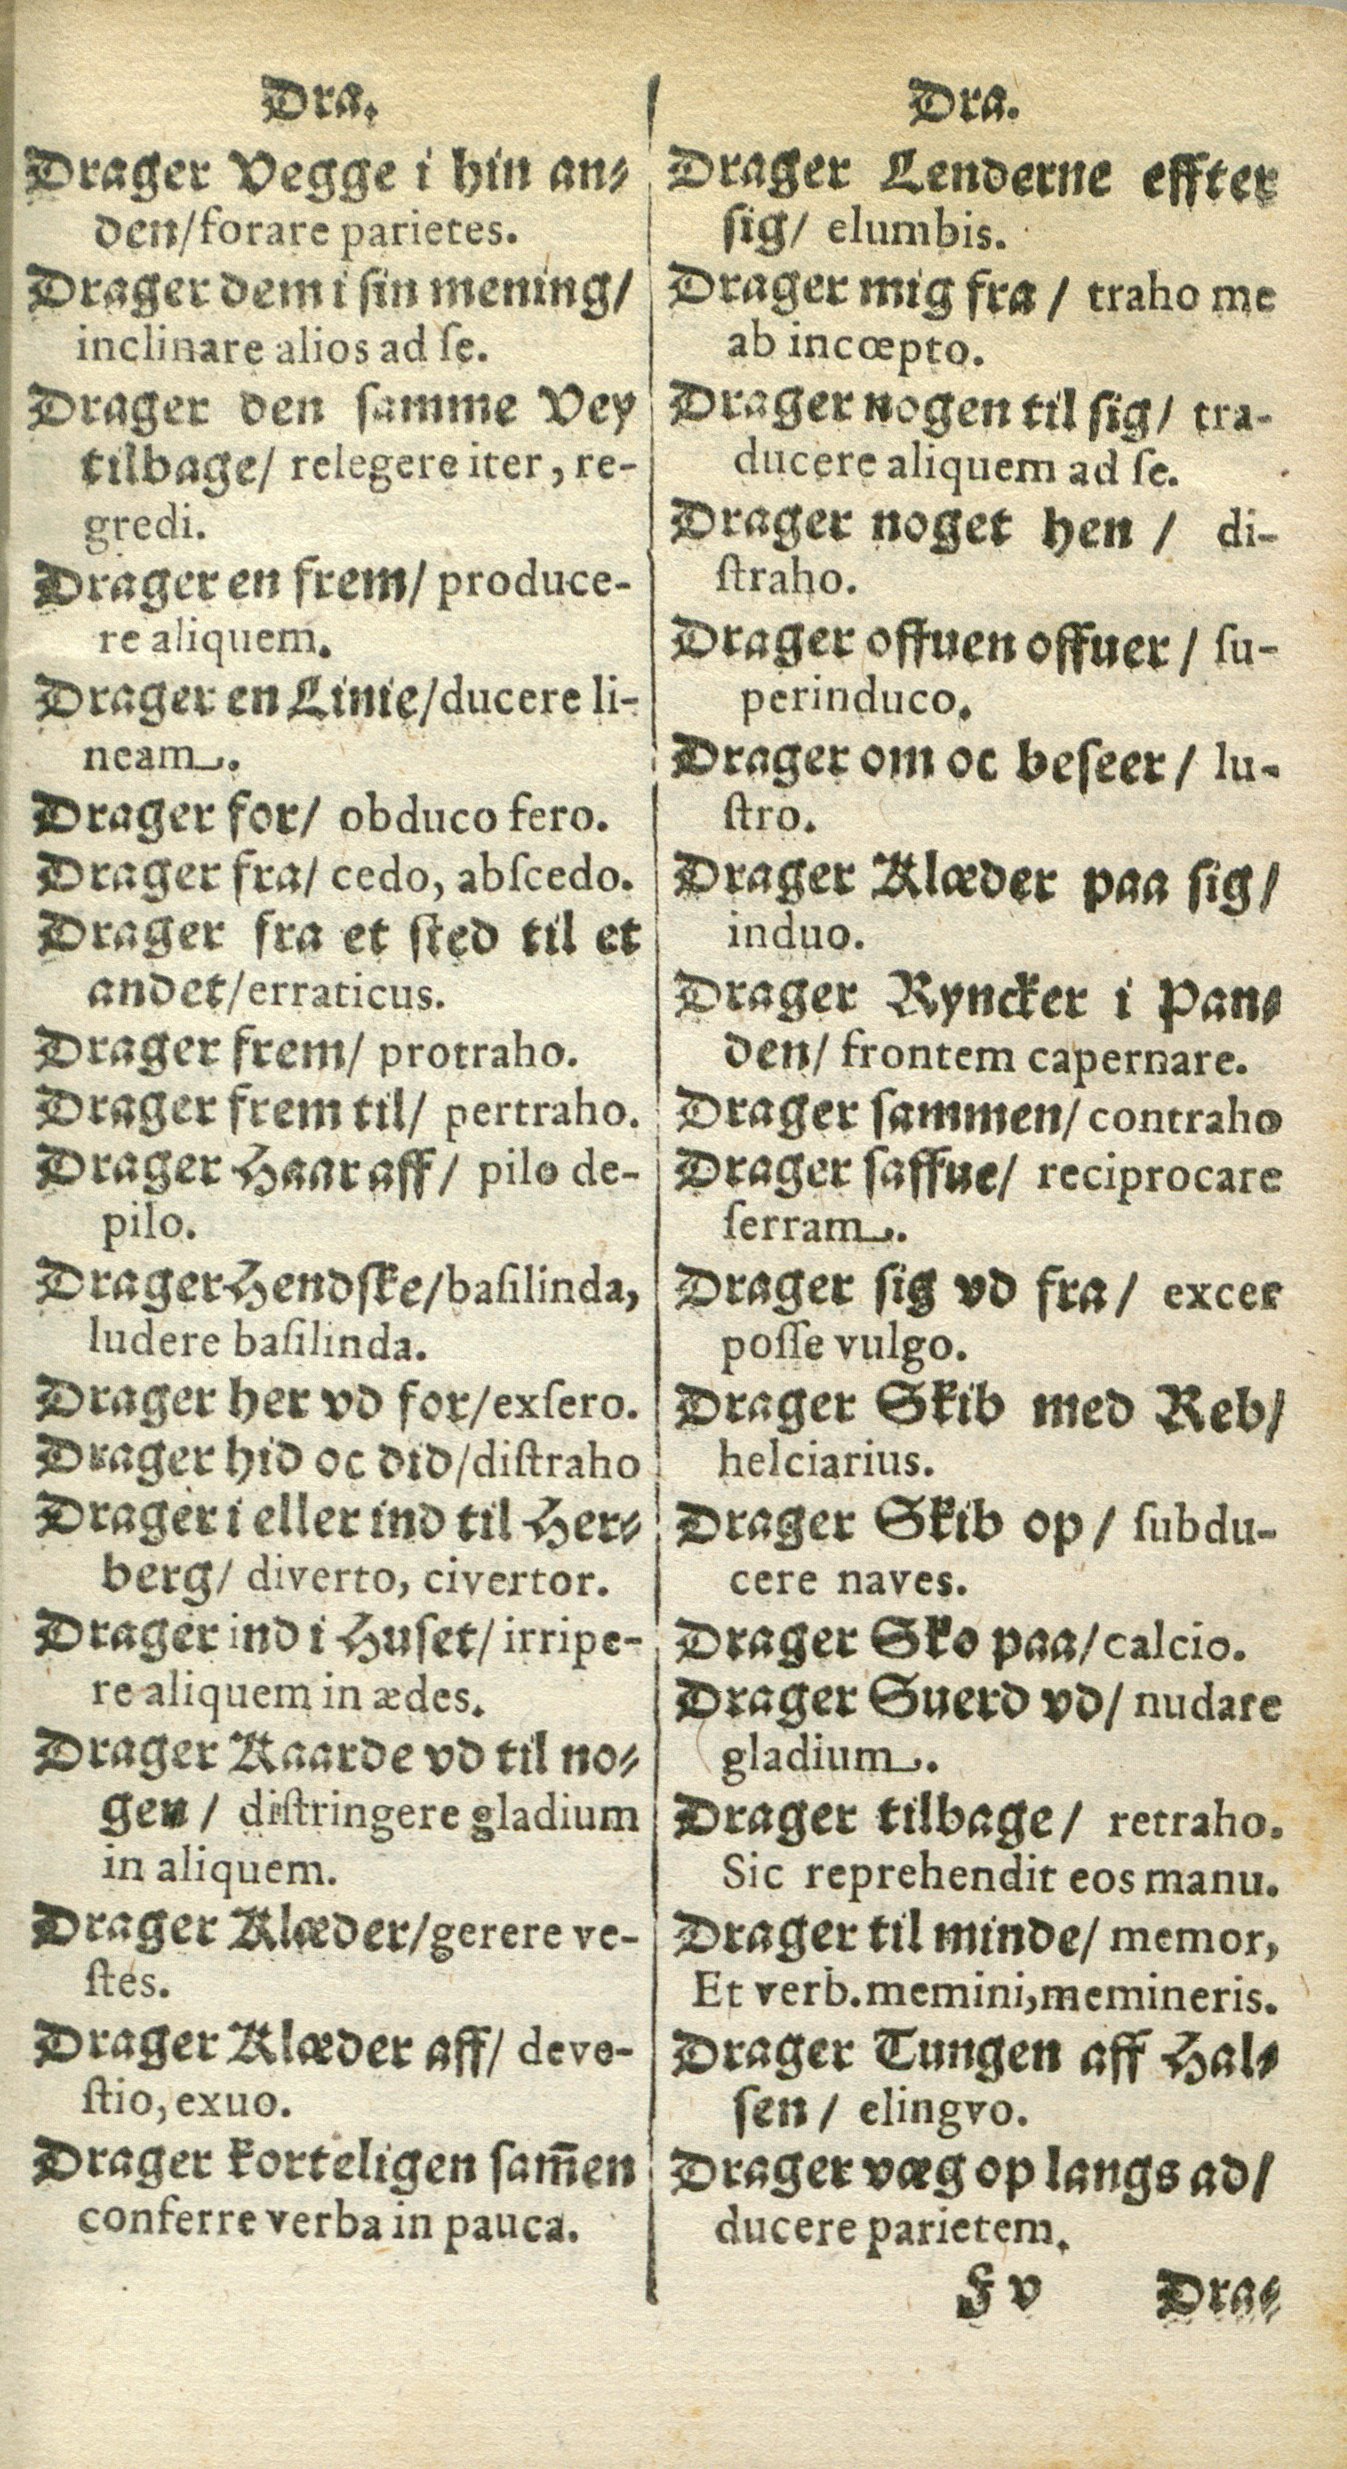 Dra.
Drager Vegge i hin an-
den/forare parietes.
Drager dem i sin mening/
inclinare alios ad ſe.
Drager den ſamme Vey
tilbage/ relegere iter, re-
gredi.
Drager en frem/ produce-
re aliquem.
Drager en Linie/ducere li-
neam.
Drager for/ obduco fero.
Drager fra/ cedo, abſcedo.
Drager fra et ſted til et
andet/erraticus.
Drager frem/ protraho.
Drager frem til/ pertraho.
Drager Haar aff/ pilo de-
pilo.
Drager Hendſke/baſilinda,
ludere baſilinda.
Drager her vd for/exſero.
Drager hid oc did/diſtraho
Drager i eller ind til Her-
berg/ diverto, civertor.
Drager ind i Huſet/irripe-
re aliquem in ædes.
Drager Kaarde vd til no-
gen/ diſtringere gladium
in aliquem.
Drager Klæder/gerere ve-
ſtes.
Drager Klæder aff/ deve-
ſtio, exuo.
Drager korteligen ſam̄en
conferre verba in pauca.
Dra.
Drager Lenderne effter
ſig/ elumbis.
Drager mig fra/ traho me
ab incœpto.
Drager nogen til ſig/ tra-
ducere aliquem ad ſe.
Drager noget hen/ di-
ſtraho.
Drager offuen offuer/ ſu-
perinduco.
Drager om oc beſeer/ lu-
ſtro.
Drager Klæder paa ſig/
induo.
Drager Ryncker i Pan-
den/ frontem capernare.
Drager ſammen/contraho
Drager ſaffue/ reciprocare
ſerram.
Drager ſig vd fra/ excer
poſſe vulgo.
Drager Skib med Reb/
helciarius.
Drager Skib op/ ſubdu-
cere naves.
Drager Sko paa/calcio.
Drager Suerd vd/ nudare
gladium.
Drager tilbage/ retraho.
Sic reprehendit eos manu.
Drager til minde/ memor,
Et verb. memini, memineris.
Drager Tungen aff Hal-
ſen/ elingvo.
Drager væg op langs ad/
ducere parietem.
F v Dra-